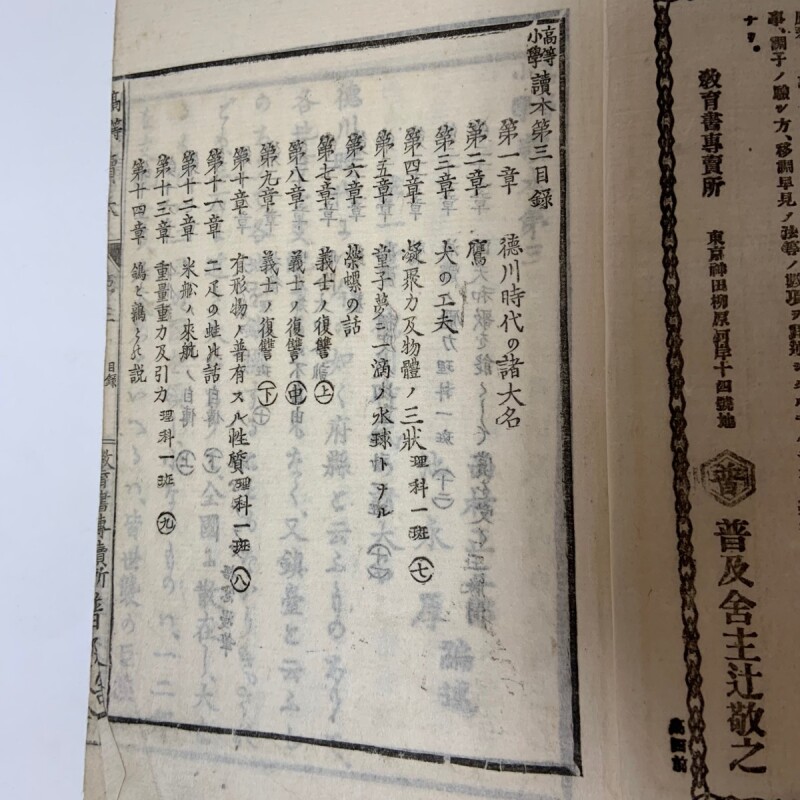 事、調子ノ驗シ方、移調早見ノ法等ノ數項ヲ
ナリ。
教育書專賣所
東京神田柳原河岸十四號地
普
普及舍主辻敬之
高等小學讀本第三目錄
第一章 德川時代の諸大名
第二章 鷹
第三章 犬の工夫
第四章 凝聚力及物體ノ三狀 理科一班 (七)
第五章 童子夢ニ一滴ノ水球トナル
第六章 榮螺の話
第七章 義士ノ復讐 (上)
第八章 義士ノ復讐 (中)
第九章 義士ノ復讐 (下)
第十章 有形物ノ普有スル性質 理科一班 (八)
第十一章 二疋の蛙の話
第十二章 米船ノ來航
第十三章 重量重力及引力 理科一班 (九)
第十四章 鷄の說
高等讀本
目錄
教育書專賣所普及舍